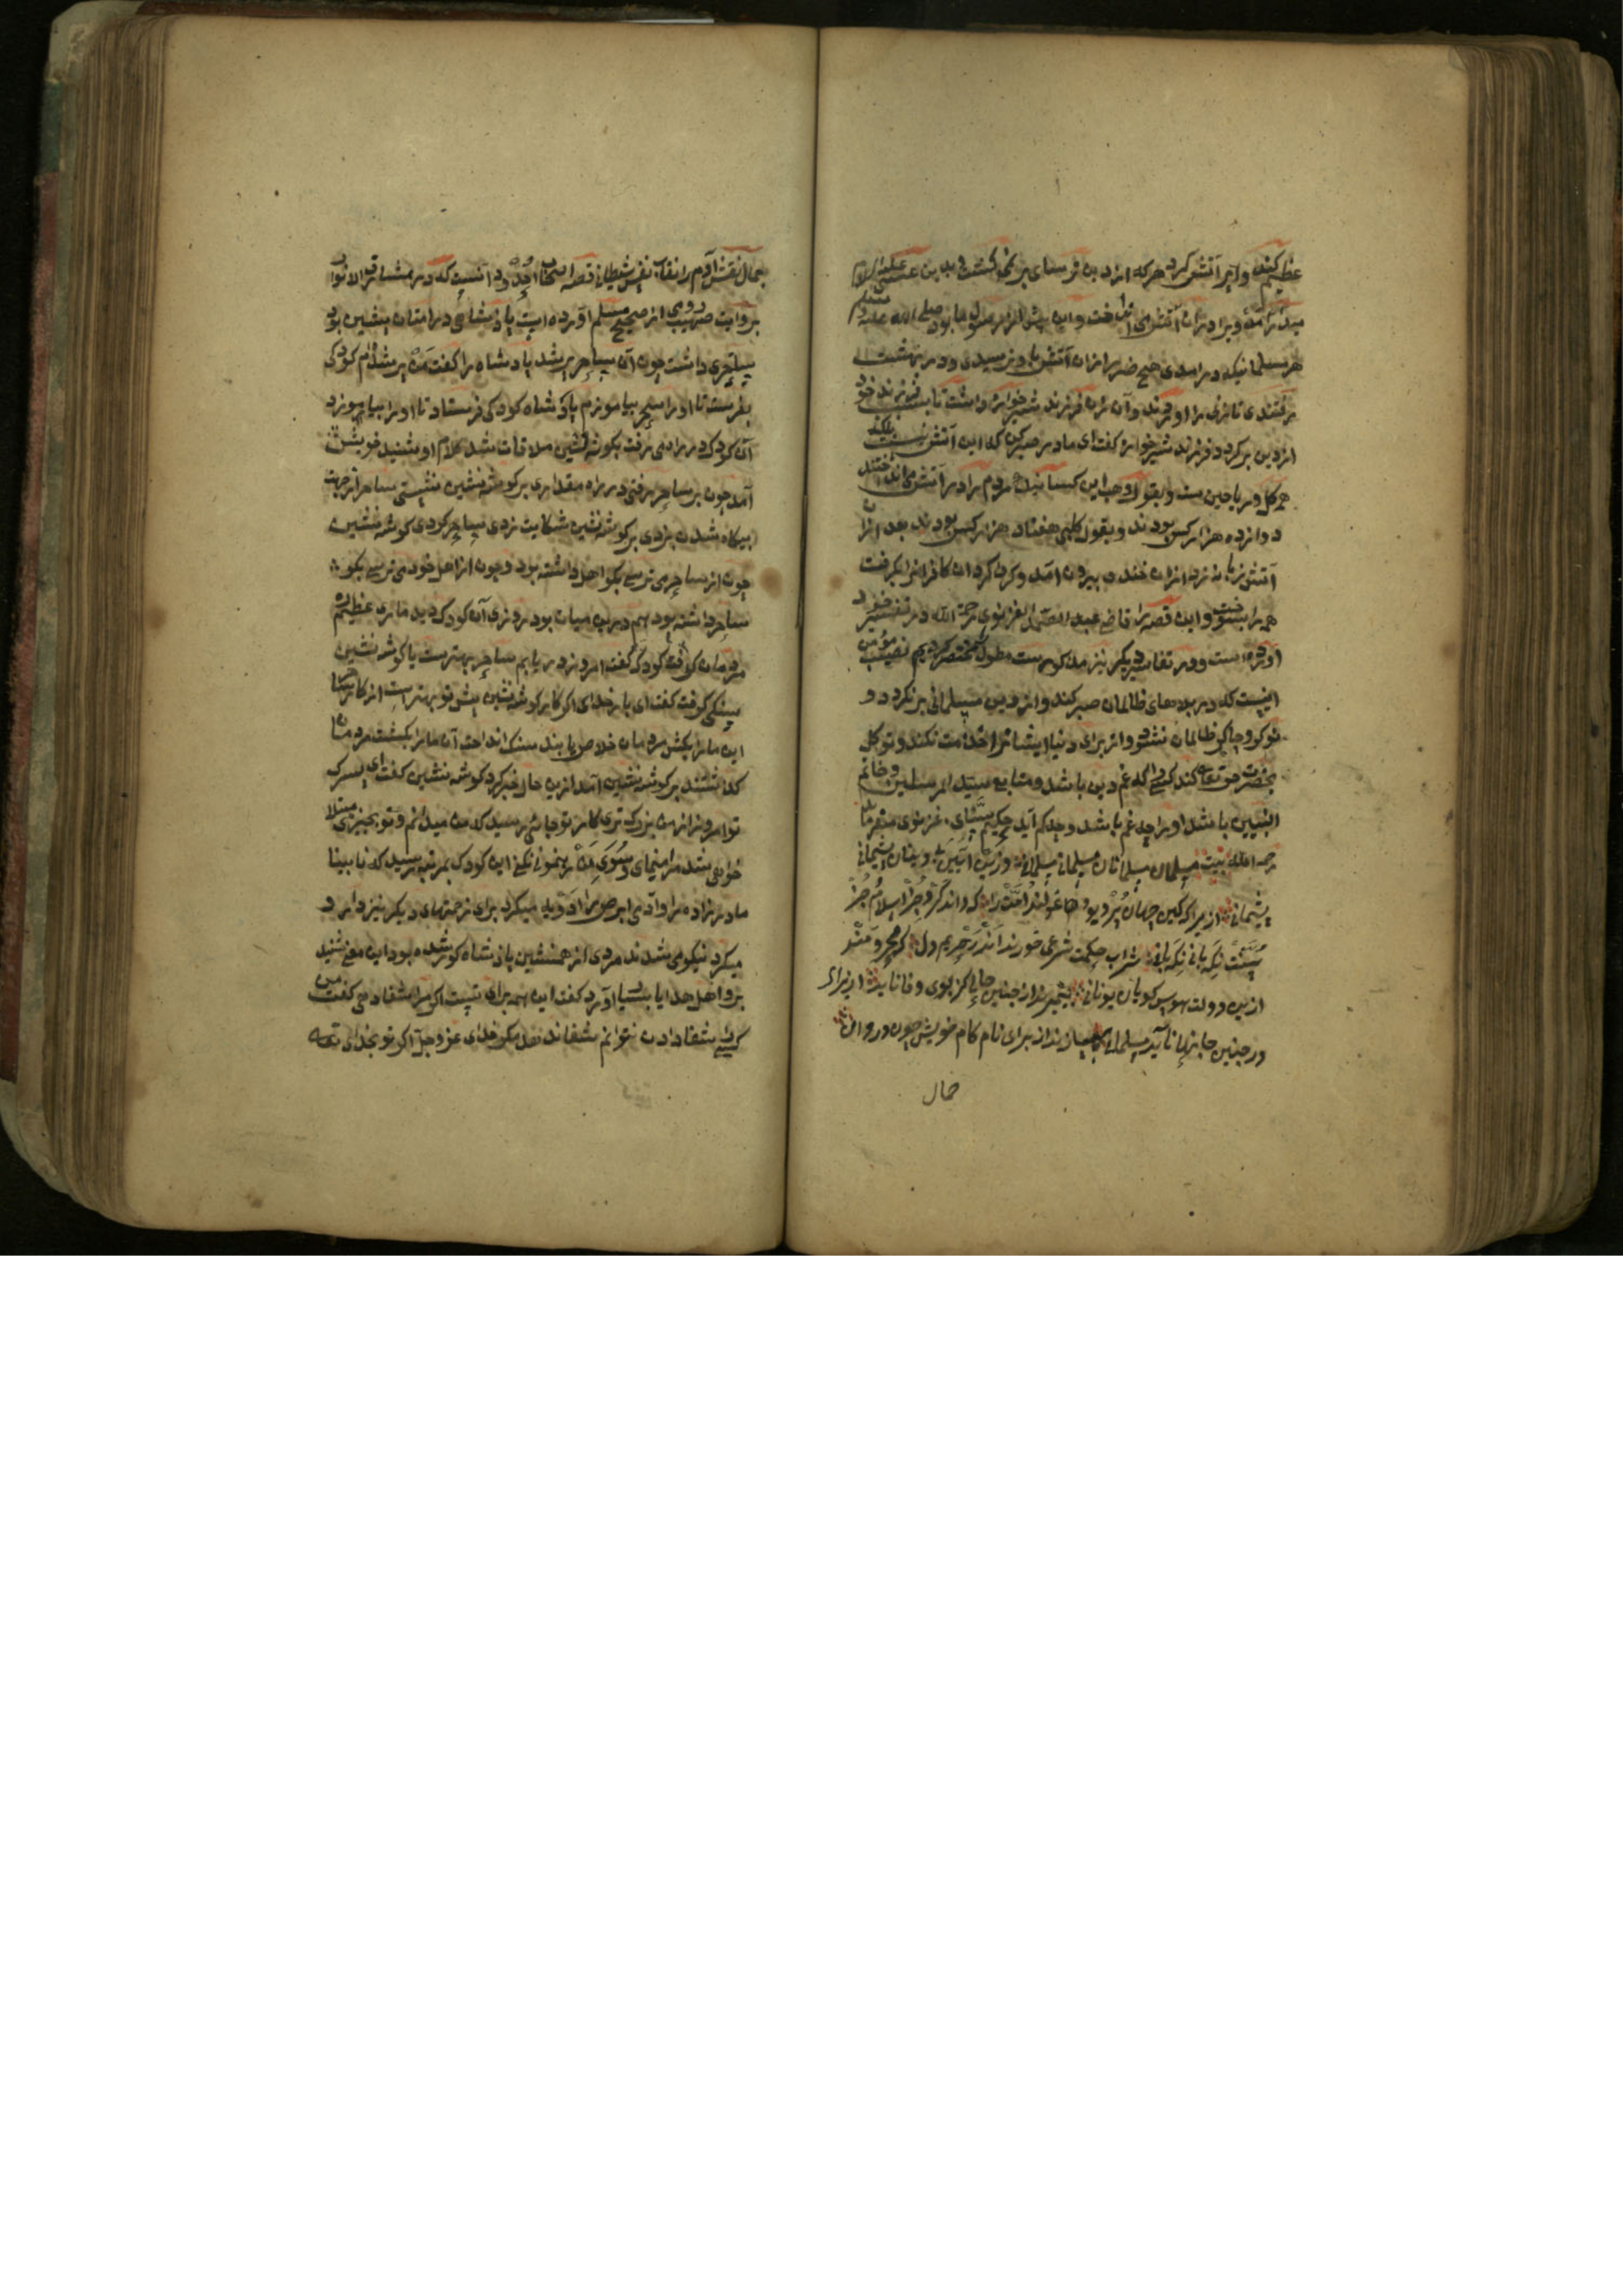 عظیم کنید و پر آتش کرد هر که از دین ترسای بر نمی کشت و بدین عیسی علیه السلام
می در آمد ویرا در ان آتش می انداخت و این پیش از رسول ما بود صلی الله علیه وسلم
هر مسلمانیکه در امدی هیچ ضرر از ان آتش باو نرسیدی و در بهشت
رفتندی تا زنی را اوردند و آن زن فرزند شیرخواره داشت تا بسبب فرزند خود
از دین بر کردد فرزند شیرخواره گفت ای مادر صبر کن که این آتش نیست بلکه
همه کل و ریاحین ست و بقول وهب این کسانیکه مردم را در آتش می انداختند
دوازده هزار کس بودند و بقول کلبی هفتاد هزار کس بودند بعد از ان
آتش زبانه زد از ان خندق بیرون آمد و کرد کرد ان کافرانرا بکرفت
همه را بسوخت و این قصه را قاضی عبد الصمد الغزنوی رحمة الله در تفسیر خود
آورده است و در تفاسیر دیگر نیز مذکورست مطول مختصر کردیم نصیب مؤمن
اینست که در بلاهای ظالمان صبر کند و از دین مسلمانی بر نکردد و
نوکر و چاکر ظالمان نشود و از برای دنیا ایشانرا خدمت نکند و توکل
بحضرت حق تعالی کند کسی را که غم دین باشد و متابع سید المرسلین و خاتم
النبیین باشد او را چه غم باشد و چه کم آید حکیم سنای غزنوی میفرماید
رحمه الله بیت مسلمانان مسلمانان مسلمانی مسلمانی وزین آیین بی دینان پشیمانی
پشیمانی از یرا که کین جهان پر دیو و غولند امت را که داند کرد جز اسلام و جز
سنت نکه بانی نکه بانی شراب حکمت شرعی خورند اندر حریم دل که محرومند
ازین دولت هوس کویان یونانی بمیرید از چنین جانی کز بوی وفا ناید ازیرا
در چنین جانها ناید مسلمانی بسازند از برای نام کام خویش چون در وان
خال
بجمال نقش آدم را نقاب نفس شیطانی قصه اصحاب اخدود آنست که در مشارق الانوار
بروایت صهیب رومی از صحیح مسلم آورده است پادشاهی در امتان پیشین بود
ساحری داشت چون آن ساحر پیر شد پادشاه را گفت من پیر شده ام کودکی
بفرست تا او را سحر بیاموزم پادشاه کودکی فرستاد تا او را بیاموزد
آن کودک در راه می رفت بگوشه نشین ملاقات شد کلام او شنید خویش
آمد چون بر ساحر رفتی در راه مقداری بر کوشه نشین نشستی ساحر از جهت
بیکاه شدن بزدی بر کوشه نشین شکایت زدن ساحر کردی کوشه نشین
چون از ساحر می ترسی بکو اهل داشته بود و چون از اهل خود می ترسی بکو
ساحر داشته بود هم درین میان بود روزی آن کودک دید ماری عظیم ره
مردمان گرفت کودک گفت امروز دریابم ساحر بهترست یا کوشه نشین
سنکی گرفت گفت ای بار خدای اکر کار کوشه نشین پیش تو بهتر است از کار ساحر
این مار را بکش مردمان خلاص یابند سنک انداخت آن مار را بکشت مردمان
گذشتند بر کوشه نشین آمد ازین حال خبر کرد کوشه نشین گفت ای پسرک
تو امروز از من بزرگ تری کار تو جائی رسید که من میدانم و تو بچیزی مبتلا
خواهی شد مرا ننمای و سوی من رهنمونی نکنی این کودک بمرتبه رسید که نابینا
مادر زاده را و آدمی ابرص را ادویه میکرد برای زحمتهای دیگر نیز دارو
میکرد نیکو می شدند مردی از همنشین پادشاه کور شده بود این معنی شنید
برو اهل هدایا بسیار آورد گفت این همه برای تست اکر مرا شفا دهی گفت من
کسی شفا دادن نتوانم شفا ندهد مکر خدای عز و جل اکر تو بخدای تعالی